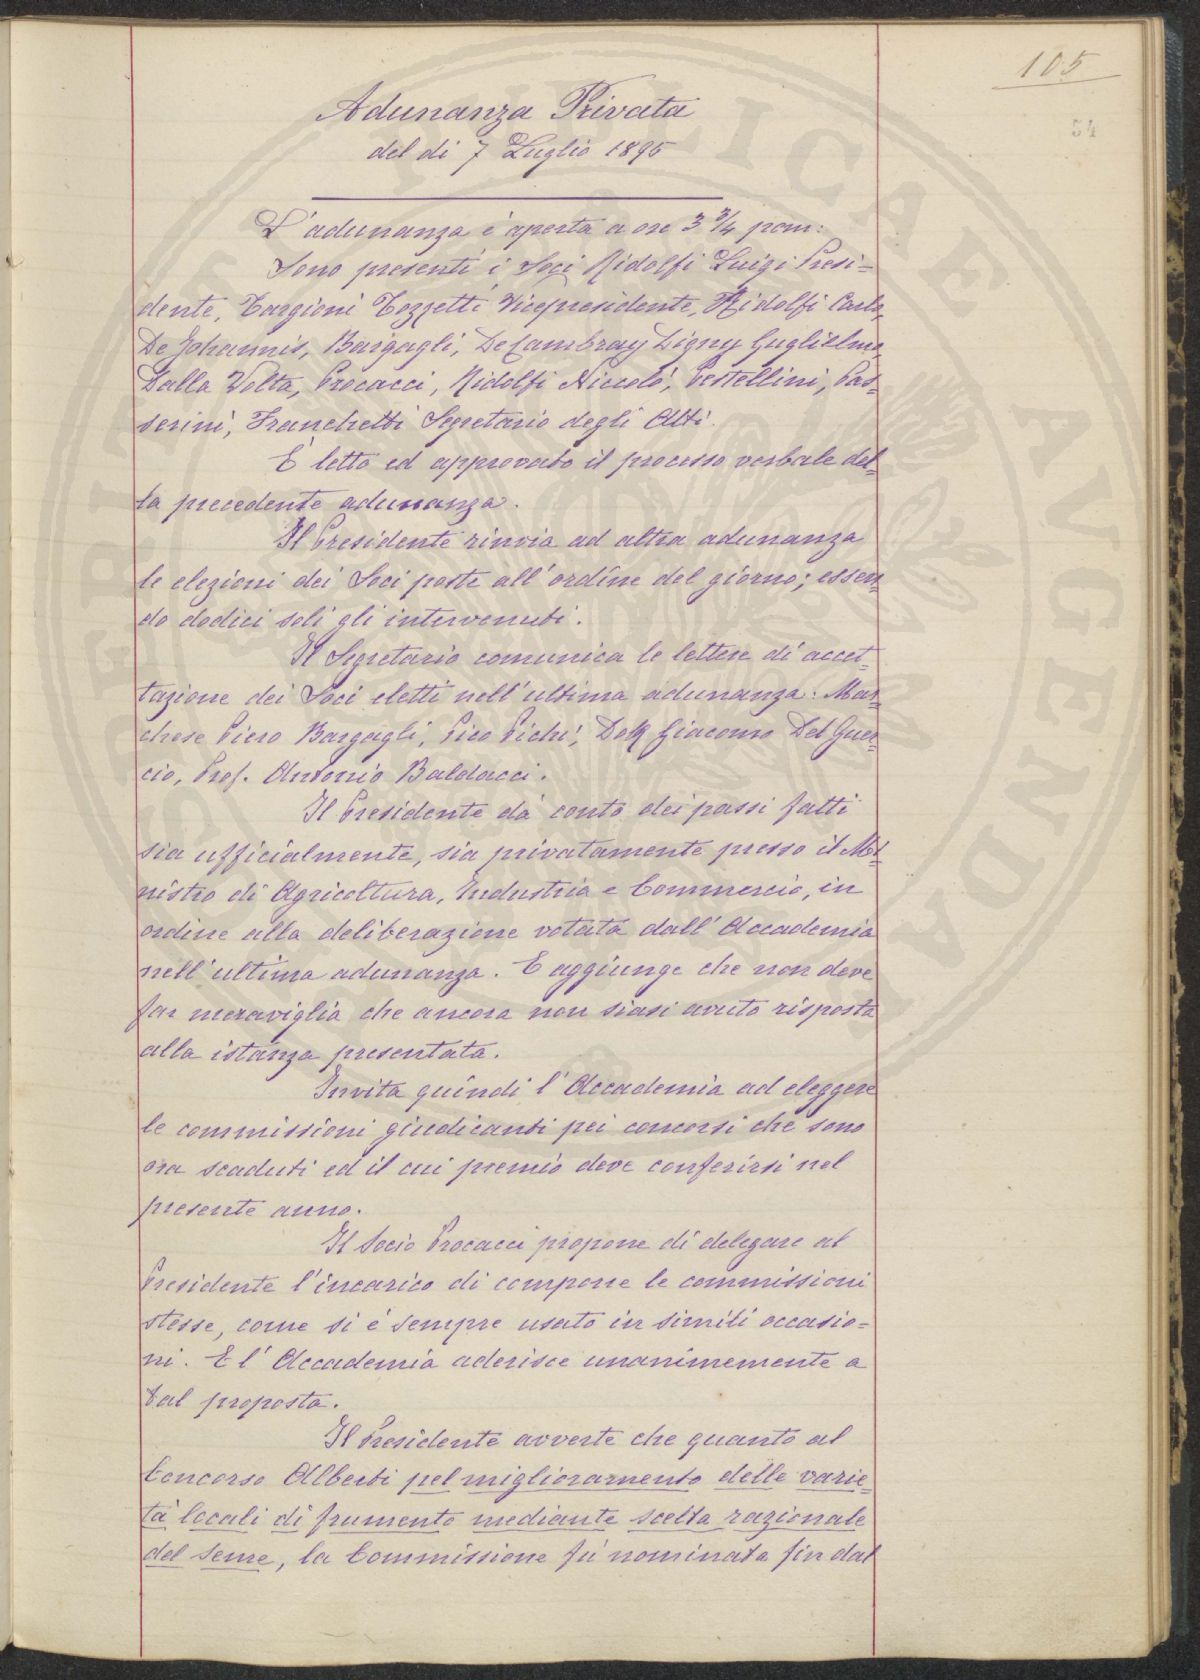 105
54
Adunanza Privata
del di 7 Luglio 1895
L'adunanza è aperta a ore 3 3/4 pom:
Sono presenti i Soci Ridolfi Luigi Presi=
dente, Targioni Tozzetti Vicepresidente, Ridolfi Carlo,
De Johannis, Bargagli, De Cambray Digny Guglielmo,
Dalla Volta, Procacci, Ridolfi Niccolò, Pestellini, Pas=
serini, Franchetti Segretario degli Atti.
È letto ed approvato il processo verbale del=
la precedente adunanza.
Il Presidente rinvia ad altra adunanza
le elezioni dei Soci poste all'ordine del giorno; essen=
do dodici soli gli intervenuti.
Il Segretario comunica le lettere di accet=
tazione dei Soci eletti nell'ultima adunanza: Mar=
chese Piero Bargagli, Pico Pichi, Dott. Giacomo Del Guer=
cio, Prof. Antonio Baldacci.
Il Presidente dà conto dei passi fatti
sia ufficialmente, sia privatamente presso il Mi=
nistro di Agricoltura, Industria e Commercio, in
ordine alla deliberazione votata dall'Accademia
nell'ultima adunanza. E aggiunge che non deve
far meraviglia che ancora non siasi avuto risposta
alla istanza presentata.
Invita quindi l'Accademia ad eleggere
le commissioni giudicanti pei concorsi che sono
ora scaduti ed il cui premio deve conferirsi nel
presente anno.
Il Socio Procacci propone di delegare al
Presidente l'incarico di comporre le commissioni
stesse, come si è sempre usato in simili occasio=
ni. E l'Accademia aderisce unanimemente a
tal proposta.
Il Presidente avverte che quanto al
Concorso Alberti pel miglioramento delle varie=
tà locali di frumento mediante scelta razionale
del seme, la Commissione fu nominata fin dal